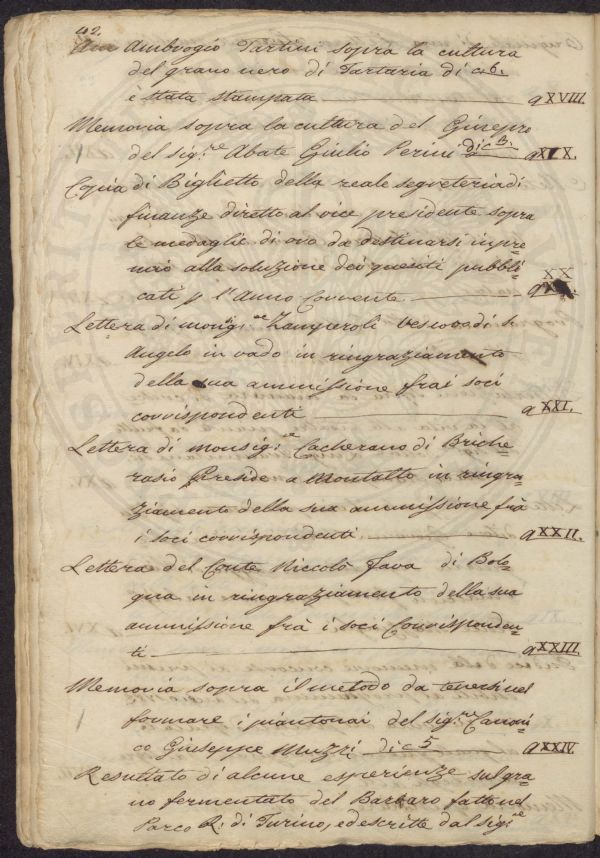 402.
Ambrogio Tartini sopra la cultura
del grano nero di Tartaria di c. 6.
è stata stampata XVIII.
Memoria sopra la cultura del Ginepro
del sig.re Abate Giulio Perini di c. 13. XIX.
Copia di Biglietto della reale segreteria di
finanze diretto al vice presidente sopra
le medaglie di oro da destinarsi in pre-
mio alla soluzione dei quesiti pubbli-
cati p l'Anno Corrente XX
Lettera di monsig.re Zamperoli Vescovo di S.
Angelo in vado in ringraziamento
della sua ammissione frai soci
corrispondenti XXI.
Lettera di monsig.re Cacherano di Briche-
rasio Preside a Montalto in ringra-
ziamento della sua ammissione frà
i soci corrispondenti XXII.
Lettera del Conte Niccolò Fava di Bolo-
gna in ringraziamento della sua
ammissione frà i soci Corrisponden-
ti XXIII.
Memoria sopra il metodo da tenersi nel
formare i piantonai del sig.re Canoni-
co Giuseppe Muzzi di c. 5 XXIV.
Resultato di alcune esperienze sul gra-
no fermentato del Barbaro fatte nel
Parco R. di Turino, e descritte dal sig.re